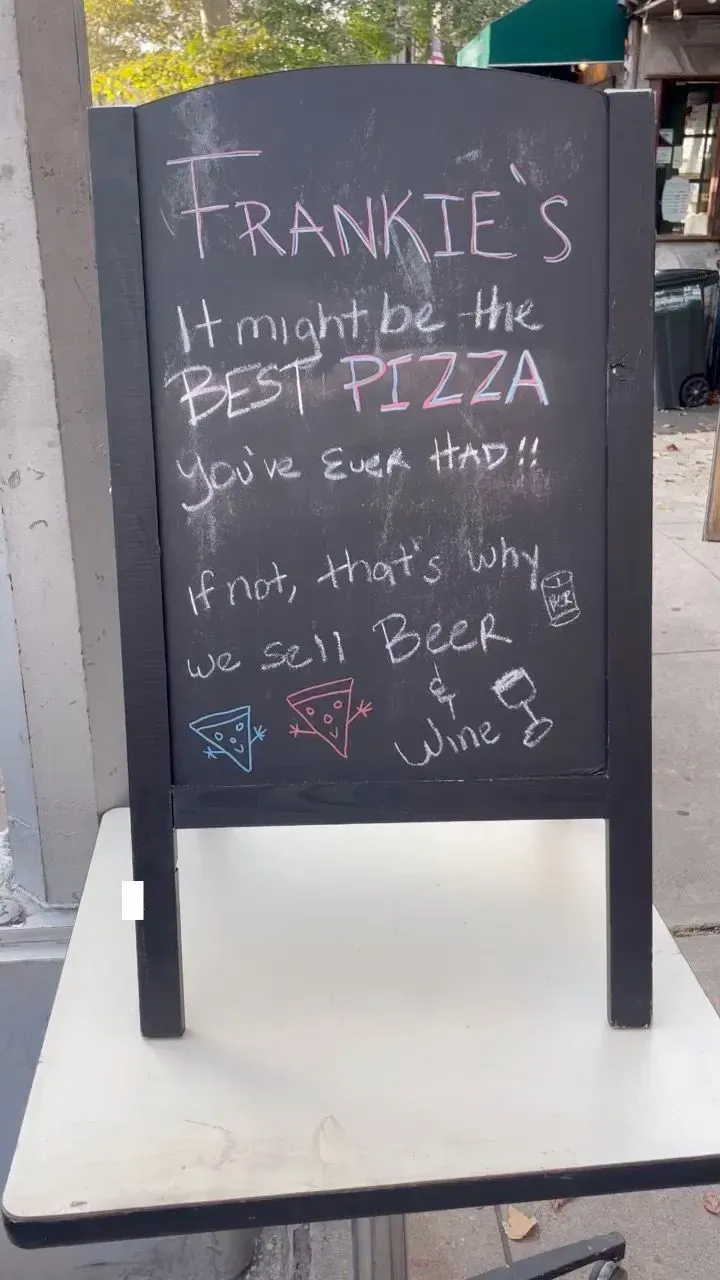 FRANKIE'S
It might be the
BEST PIZZA
you've Ever HAD!!
If not, that's why
we sell Beer
&
Wine
BEER